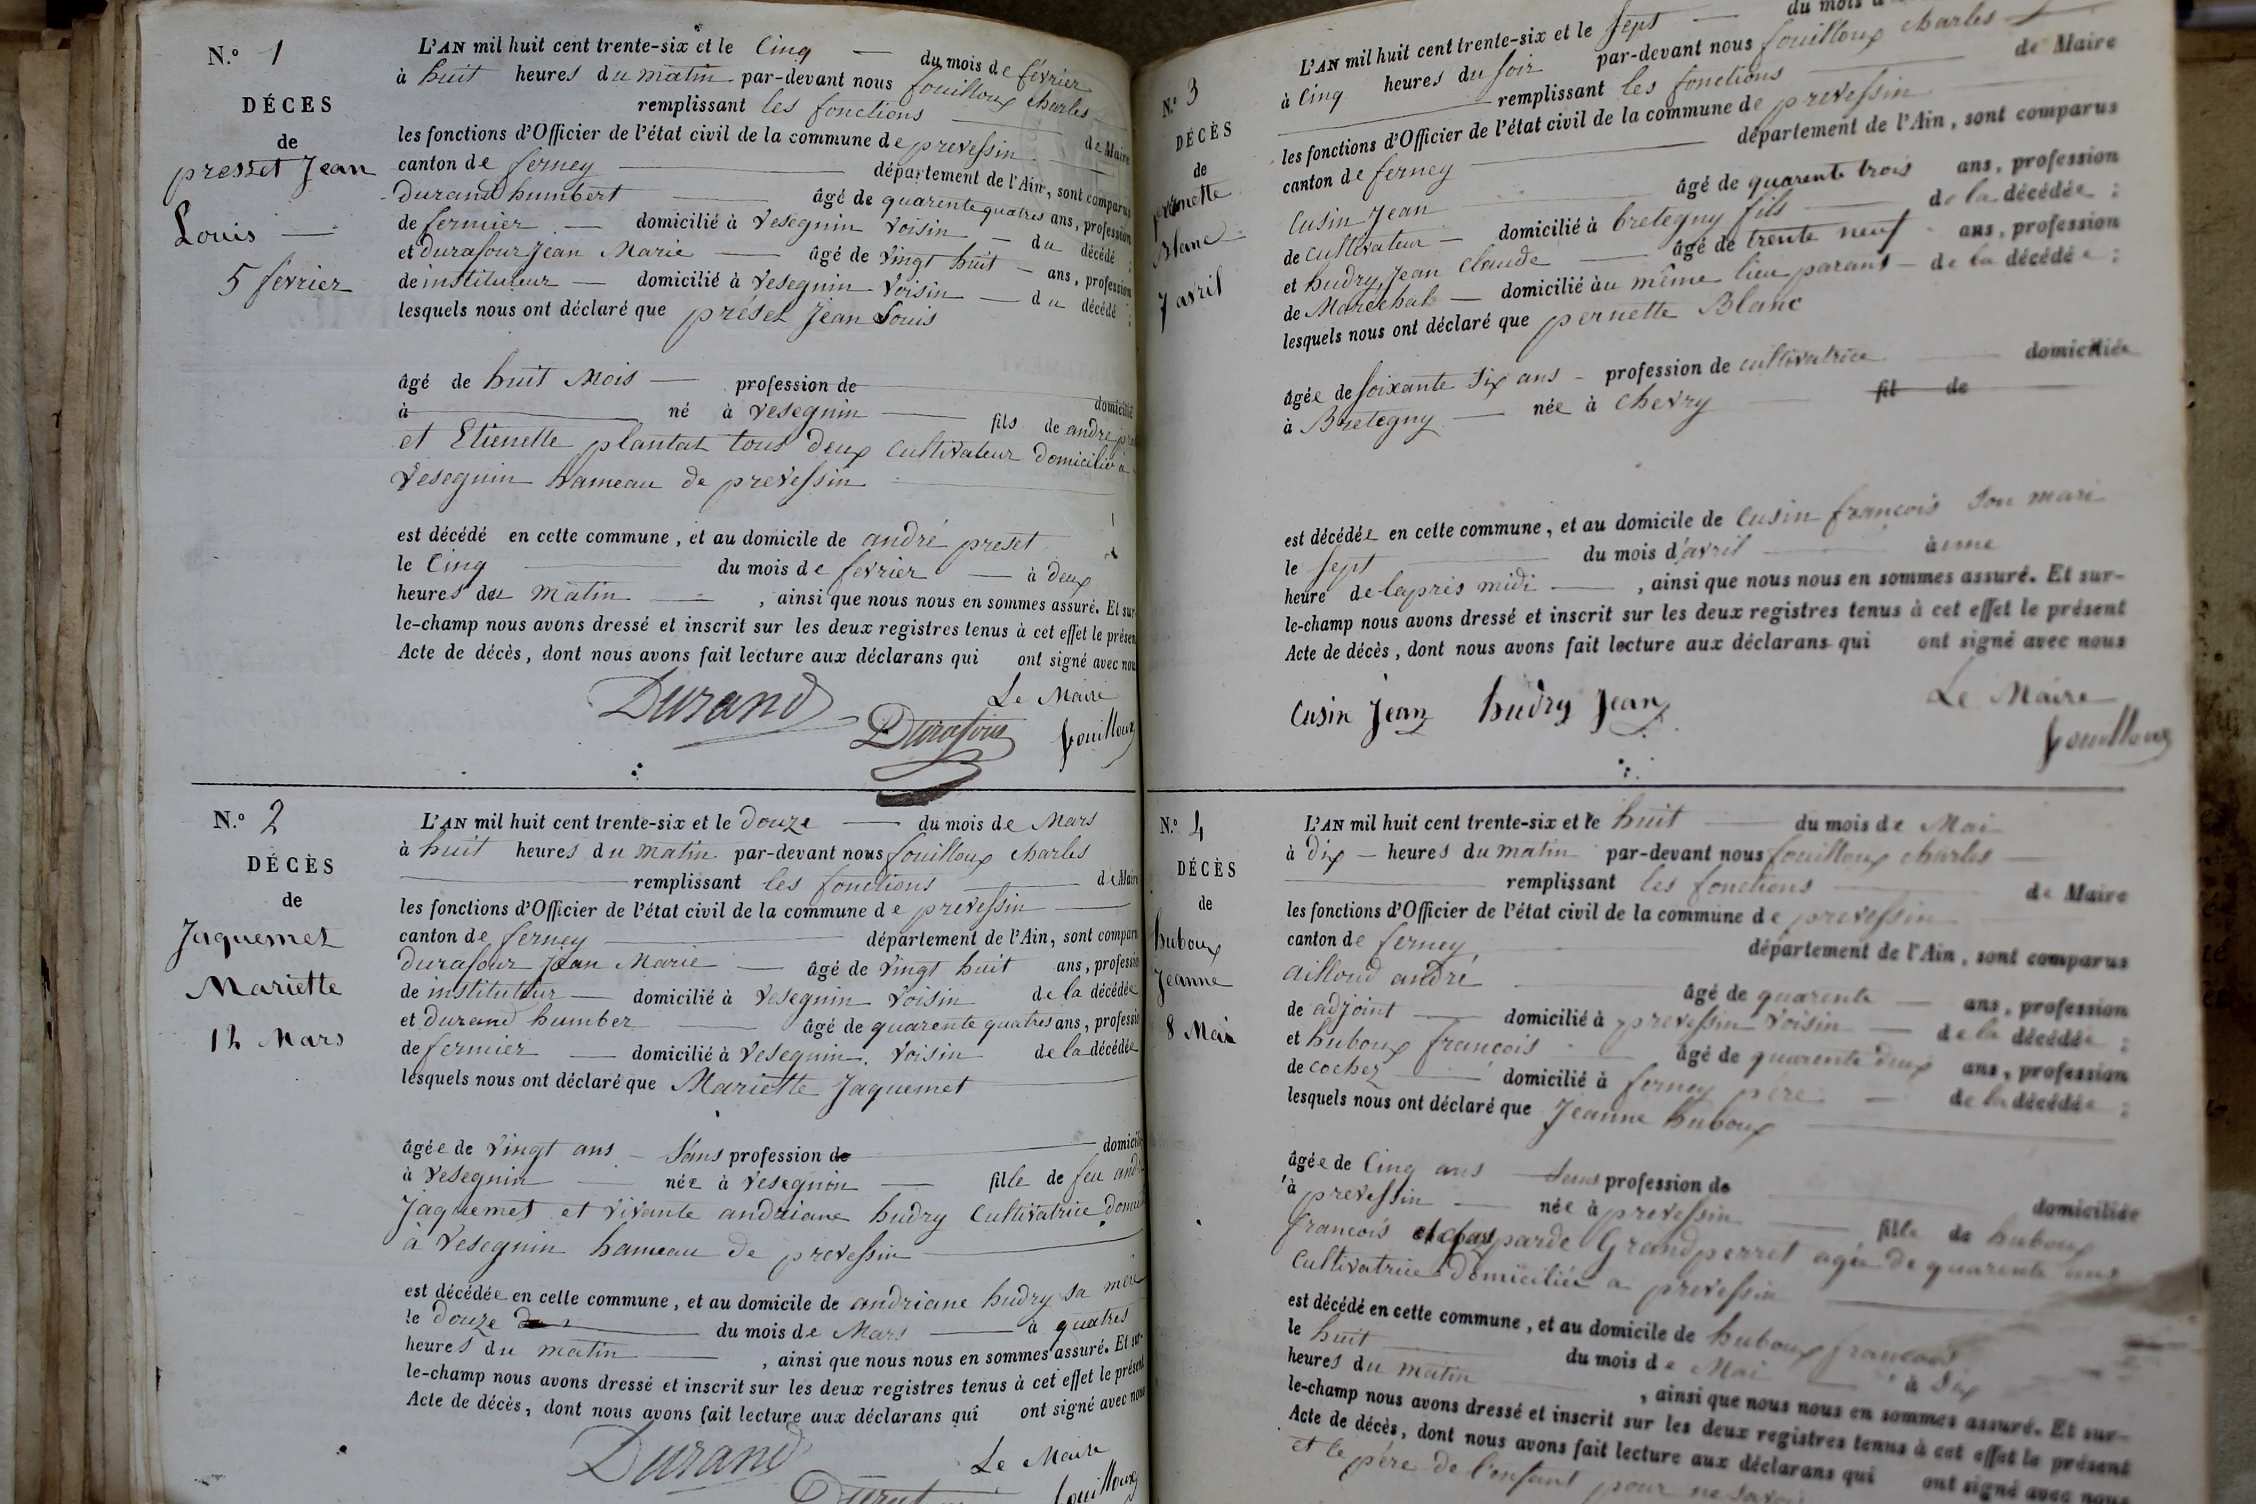 N.º 1
DÉCES
de
presset Jean
Louis
5 février
L'AN mil huit cent trente-six et le Cinq du mois de février
à huit heures du matin par-devant nous fouilloux charles
remplissant les fonctions de Maire
les fonctions d'Officier de l'état civil de la commune de prevessin
canton de ferney département de l'Ain, sont comparus
Durand humbert âgé de quarente quatres ans, profession
de fermier domicilié à Vesegnin Voisin du décédé ;
et durafour Jean Marie âgé de Vingt huit ans, profession
de instituteur domicilié à Vesegnin Voisin du décédé ;
lesquels nous ont déclaré que préset Jean Louis
âgé de huit Mois profession de domicilié
à né à Vesegnin fils de andré
et Etienette plantat tous deux Cultivateur domicilié a
Vesegnin hameau de prevessin
est décédé en cette commune, et au domicile de andré preset
le Cinq du mois de fevrier à deux
heures du matin , ainsi que nous nous en sommes assuré. Et sur-
le-champ nous avons dressé et inscrit sur les deux registres tenus à cet effet le présen
Acte de décès, dont nous avons fait lecture aux déclarans qui ont signé avec nou
Le Maire
Durand Durafour fouilloux
N.º 2
DÉCÈS
de
Jaquemet
Mariette
12 Mars
L'AN mil huit cent trente-six et le douze du mois de Mars
à huit heures du matin par-devant nous fouilloux charles
remplissant les fonctions de Maire
les fonctions d'Officier de l'état civil de la commune de prevessin
canton de ferney département de l'Ain, sont compar
durafour jean Marie âgé de Vingt huit ans, professi
de instituteur domicilié à Vesegnin Voisin de la décédée
et durand humber âgé de quarente quatres ans, professi
de fermier domicilié à Vesegnin Voisin de la décédée
lesquels nous ont déclaré que Mariette Jaquemet
âgée de Vingt ans Sans profession de domicil
à Vesegnin née à Vesegnin fille de feu and
Jaquemet et vivante andriane hudry Cultivatrice domi
à Vesegnin hameau de prevessin
est décédée en cette commune, et au domicile de andriane hudry sa mère
le douze du mois de Mars à quatres
heures du matin , ainsi que nous nous en sommes assuré. Et sur-
le-champ nous avons dressé et inscrit sur les deux registres tenus à cet effet le présent
Acte de décès, dont nous avons fait lecture aux déclarans qui ont signé avec nous
Le Maire
Durand fouilloux
N.º 3
DÉCÈS
de
pernette
Blanc
7 avril
L'AN mil huit cent trente-six et le sept du mois
à Cinq heures du soir par-devant nous fouilloux charles
remplissant les fonctions de Maire
les fonctions d'Officier de l'état civil de la commune de prevessin
canton de ferney département de l'Ain, sont comparus
Cusin Jean âgé de quarente trois ans, profession
de cultivateur domicilié à bretegny fils de la décédée ;
et hudry Jean Claude âgé de trente neuf ans, profession
de Maréchal domicilié au même lieu parant de la décédée ;
lesquels nous ont déclaré que pernette Blanc
âgée de soixante six ans profession de cultivatrice domiciliée
à Bretegny née à Chevry fil de
est décédée en cette commune, et au domicile de Cusin françois son mari
le sept du mois d'avril à une
heure de lapris midi , ainsi que nous nous en sommes assuré. Et sur-
le-champ nous avons dressé et inscrit sur les deux registres tenus à cet effet le présent
Acte de décès, dont nous avons fait lecture aux déclarans qui ont signé avec nous
Le Maire
Cusin Jean hudry Jean fouilloux
N.º 4
DÉCÈS
de
huboux
Jeanne
8 Mai
L'AN mil huit cent trente-six et le huit du mois de Mai
à dix heures du matin par-devant nous fouilloux charles
remplissant les fonctions de Maire
les fonctions d'Officier de l'état civil de la commune de prevessin
canton de ferney département de l'Ain, sont comparus
ailloud andré âgé de quarente ans, profession
de adjoint domicilié à prevessin Voisin de la décédée ;
et huboux françois âgé de quarente deux ans, profession
de cochez domicilié à ferney père de la décédée ;
lesquels nous ont déclaré que Jeanne huboux
âgée de Cinq ans Sans profession de domiciliée
à prevessin née à prevessin fille de huboux
francois Grandperret agée de quarente ans
Cultivatrice domiciliée a prevessin
est décédé en cette commune, et au domicile de huboux francois
le huit du mois de Mai à Dix
heures du matin , ainsi que nous nous en sommes assuré. Et sur-
le-champ nous avons dressé et inscrit sur les deux registres tenus à cet effet le présent
Acte de décès, dont nous avons fait lecture aux déclarans qui ont signé avec nous
et le père de l'enfant pour ne savoir